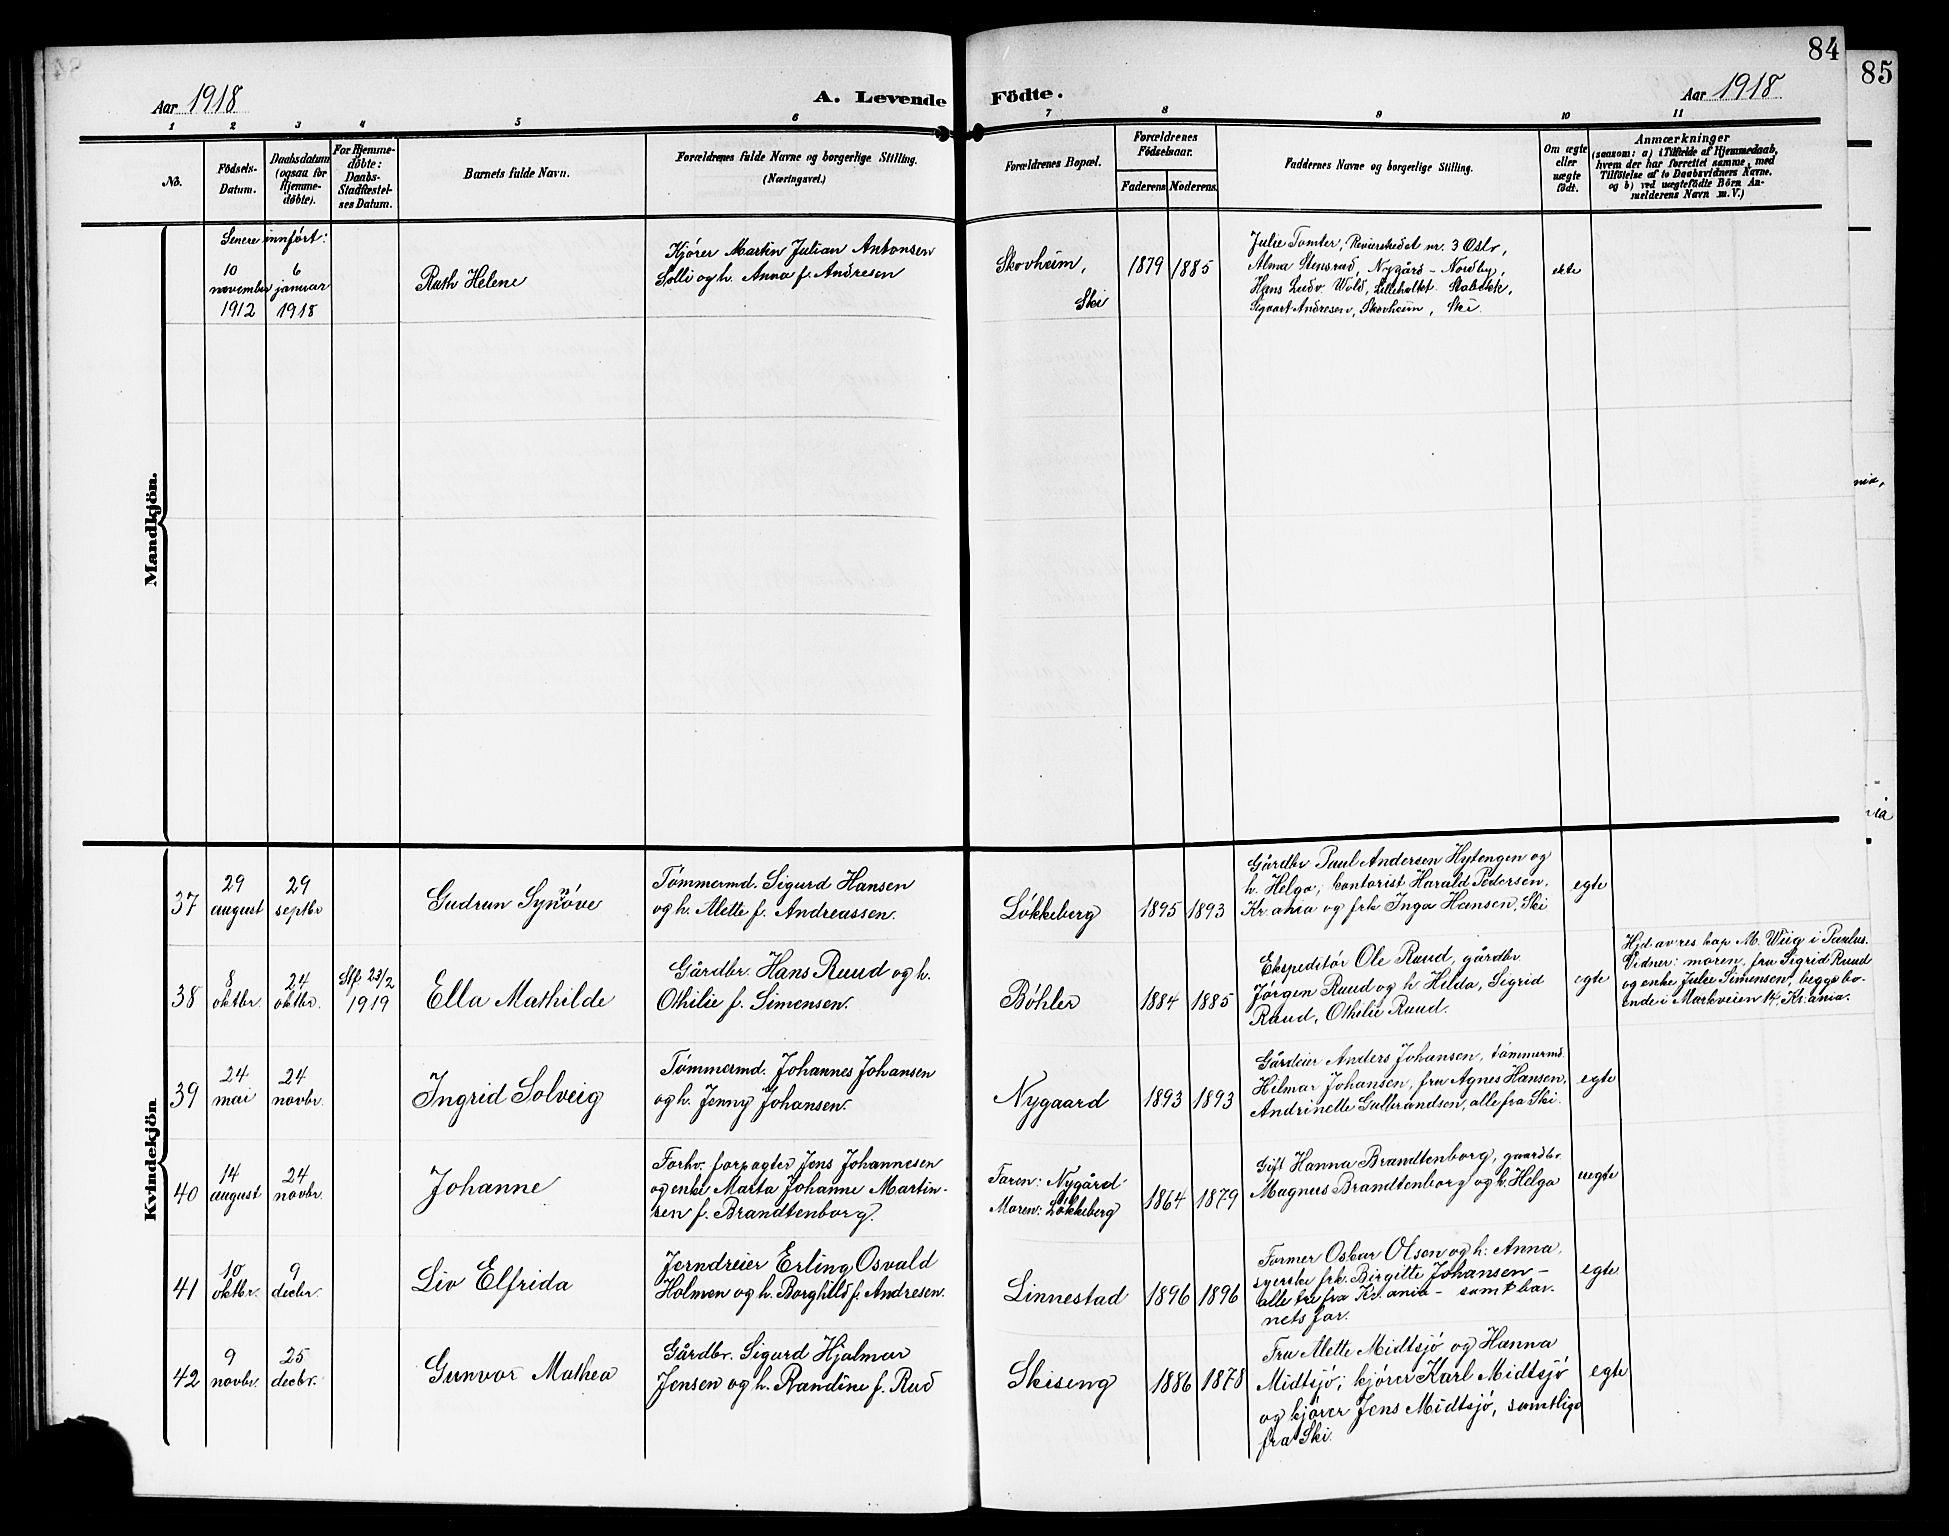 84
85
Aar 1918
A. Levende Födte.
Aar 1918
1 2 3 4 5 6 7 8 9 10 11
No.
Födsels-
Datum.
Daabsdatum
(ogsaa for
Hjemme-
döbte).
For Hjemme-
döbte:
Daabs-
Stadfæstel-
ses Datum.
Barnets fulde Navn.
Forældrenes fulde Navne og borgerlige Stilling.
(Næringsvei.)
Forældrenes Bopæl.
Forældrenes
Födselsaar.
Faderens Moderens.
Faddernes Navne og borgerlige Stilling.
Om ægte
eller
uægte
födt.
Anmærkninger
(saasom: a) i Tilfælde af Hjemmedaab,
hvem der har forrettet samme, med
Tilföielse af to Daabsvidners Navne.
og b) ved uægtefödte Börn An-
melderens Navn m. V.)
Mandkjön.
Senere innført:
10
november
1912
6
januar
1918
Ruth Helene
Kjører Martin Julian Antonsen
Solli og h. Anna f. Andresen
Skovheim,
Ski
1879 1885
Julie Tomter, Revierstedet nr. 3 Oslo,
Alma Stensrud, Nygård - Nordby,
Hans Ludv. Wold, Lilleholtet Stabekk,
Sigvart Andresen, Skovheim, Ski.
ekte
Kvindekjön
37
29
august
29
septbr
Gudrun Synnöve
Tømmermd. Sigurd Hansen
og h. Alette f. Andreassen.
Løkkeberg
1895 1893
Gårdbr Paul Andersen Hytengen og
h. Helga; kontorist Harald Pedersen,
Kr.ania og frk Inga Hansen, Ski
egte
38
8
oktbr.
24
oktbr.
Stf 23/2
1919
Ella Mathilde
Gårdbr. Hans Ruud og h.
Othilie f. Simensen.
Böhler
1884 1885
Ekspeditør Ole Ruud, gårdbr.
Jörgen Ruud og h Hilda, Sigrid
Ruud, Othilie Ruud.
egte
Hjd av res kap M. Wiig i Paulus.
Vidner: moren, fru Sigrid Ruud
og enke Julie Simensen, begge bo-
ende i Markveien 14. Kr.ania.
39
24
mai
24
novbr.
Ingrid Solveig
Tømmermd. Johannes Johansen
og h. Jenny Johansen.
Nygaard
1893 1893
Gårdeier Anders Johansen, tømmermd.
Hilmar Johansen, fru Agnes Hansen,
Andrinette Gulbrandsen, alle fra Ski.
egte
40
14
august
24
novbr.
Johanne
Forhv. forpagter Jens Johannesen
og enke Marta Johanne Martin-
sen f. Brandtenborg.
Faren: Nygård
Moren: Løkkeberg
1864 1879
Gift Hanna Brandtenborg, gaardbr
Magnus Brandtenborg og h. Helga
uegte
41
10
oktbr.
9
decbr.
Liv Elfrida
Jerndreier Erling Osvald
Holmen og h. Borghild f. Andresen.
Linnestad
1896 1896
Former Oskar Olsen og h. Anna,
syerske frk. Birgitte Johansen -
alle tre fra Kr.ania - samt bar-
nets far.
egte
42
9
novbr.
25
decbr.
Gunvor Mathea
Gårdbr. Sigurd Hjalmar
Jensen og h. Randine f. Rud
Skiseng
1886 1878
Fru Alette Midtsjö og Hanna
Midtsjö; kjører Karl Midtsjö
og kjører Jens Midtsjö, samtlige
fra Ski.
egte